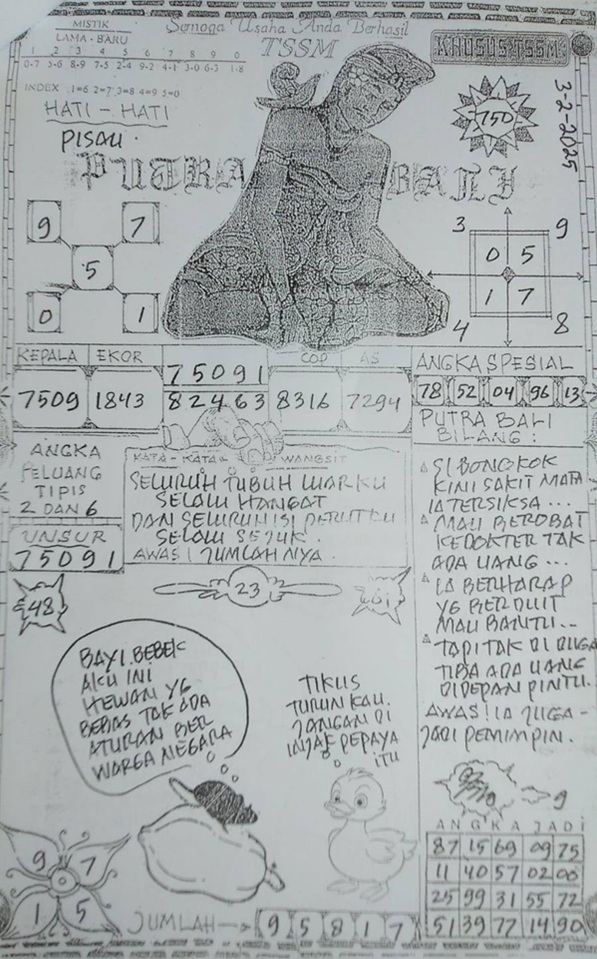 MISTIK
LAMA - BARU
1 2 3 4 5 6 7 8 9 0
0-7 5-6 8-9 7-5 2-4 9-2 4-1 3-0 6-3 1-8
INDEX 1=6 2=7 3=8 4=9 5=0
Semoga Usaha Anda Berhasil
TSSM
KHUSUS TSSM
HATI - HATI
PISAU
PUTRA BALI
750
3-2-2025
9 7
5
0 1
3 9
0 5
1 7
4 8
KEPALA EKOR
7509 1843
75091
82463
COP AS
8316 7294
ANGKA SPESIAL
78 52 04 96 13
ANGKA
PELUANG
TIPIS
2 DAN 6
UNSUR
75091
KATA - KATA WANGSIT
SELURUH TUBUH LUARKU
SELALU HANGAT
DAN SELURUH ISI PERUTKU
SELALU SEJUK.
AWAS! JUMLAHNYA.
PUTRA BALI
BILANG:
SI BONGKOK
KINI SAKIT MATA
IA TERSIKSA...
MAU BEROBAT
KEDOKTER TAK
ADA UANG...
IA BERHARAP
YG BERDUIT
MAU BANTU...
TAPI TAK DI DUGA
TIBA ADA UANG
DIDEPAN PINTU.
AWAS! IA JUGA -
JADI PEMIMPIN.
48
23
BAYI BEBEK
AKU INI
HEWAN YG
BEBAS TAK ADA
ATURAN BER
WARGA NEGARA
TIKUS
TURUN KAU.
JANGAN DI
INJAK PEPAYA
ITU
9
9 7
1 5
JUMLAH
9 5 8 1 7
ANGKA JADI
87 15 69 09 75
11 40 57 02 00
25 99 31 55 72
51 39 77 14 90